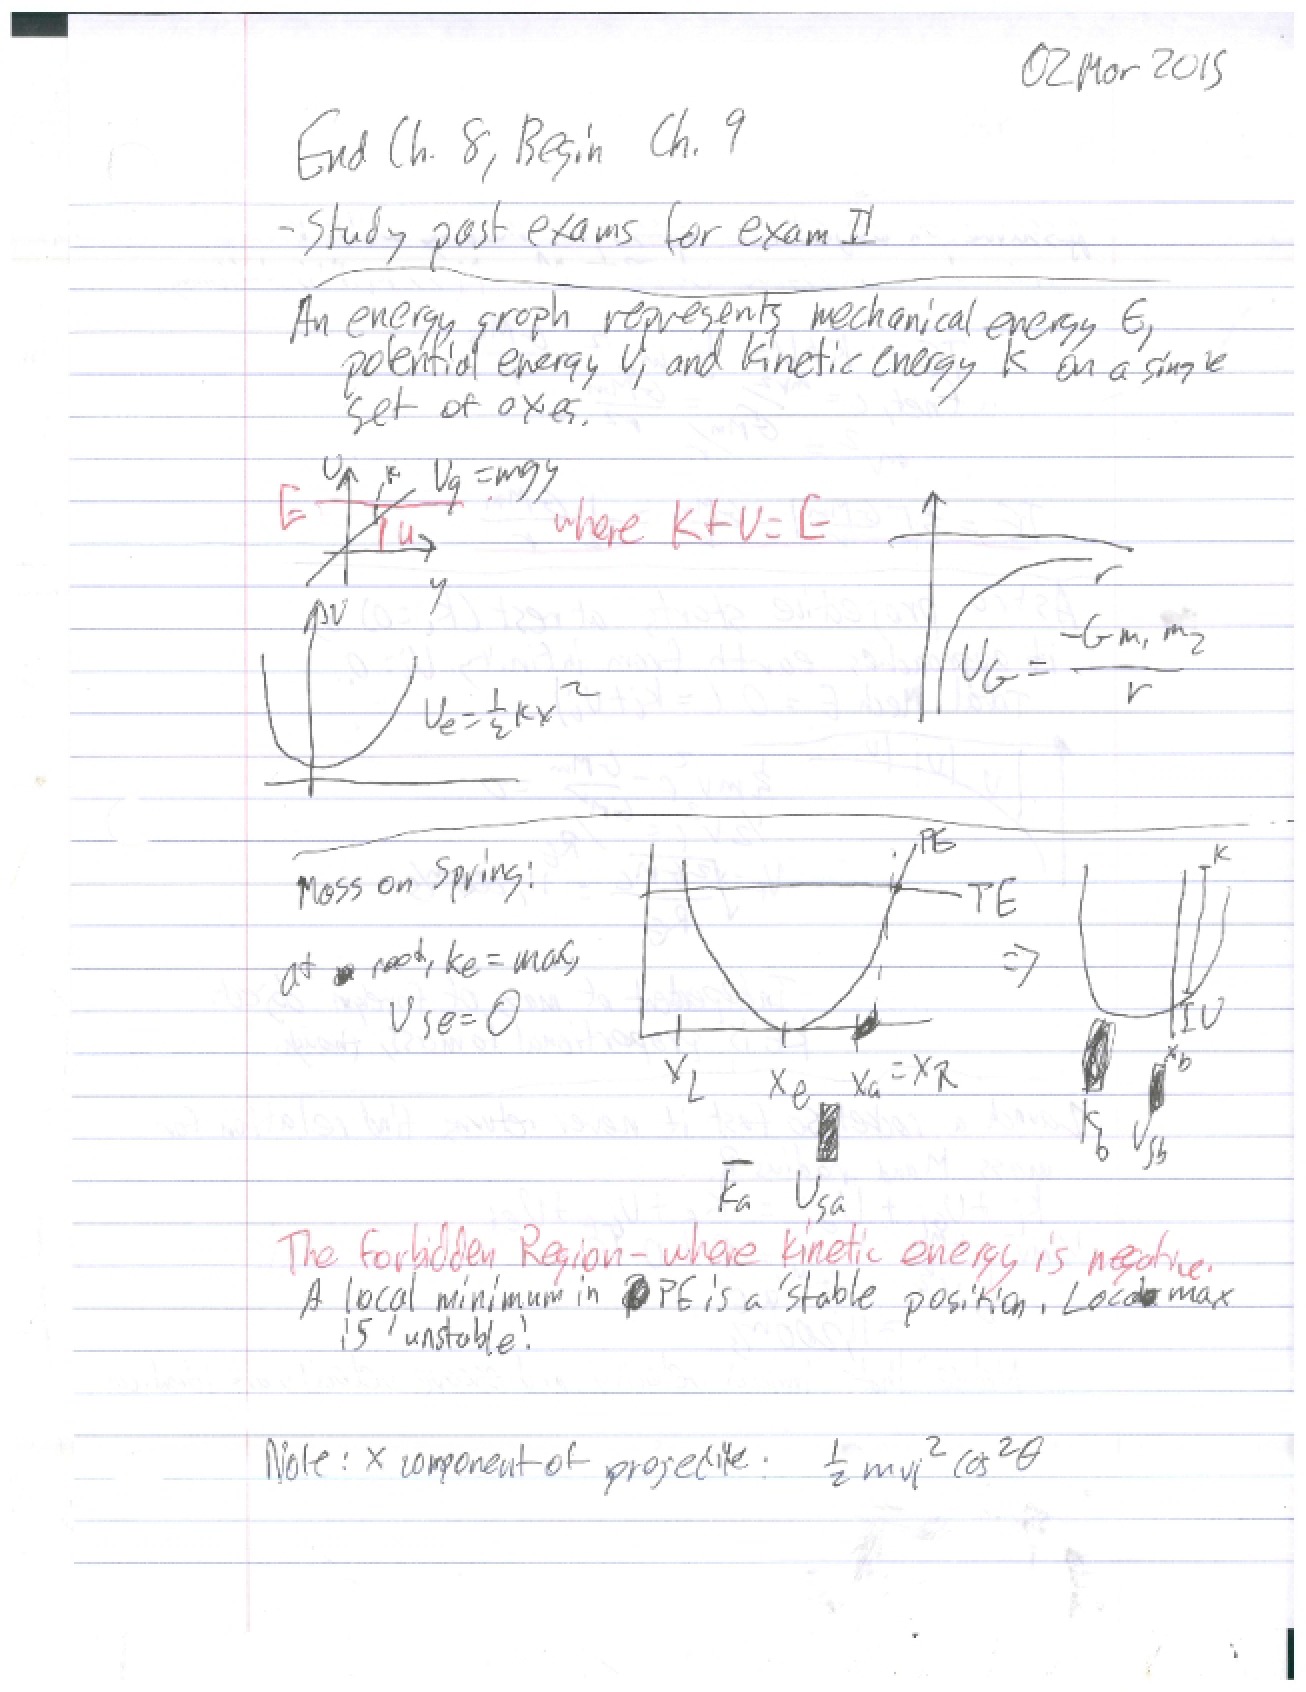 02 Mar 2015
End Ch. 8, Begin Ch. 9
- Study past exams for exam II
An energy graph represents mechanical energy E,
potential energy U, and kinetic energy K on a single
set of axes.
U K Ug = mgy
E u where K+U=E
y r
U
UG = -G m1 m2 / r
Ue = 1/2 kx²
Mass on Spring: PE K
TE
at rest, ke = max, ⇒
Use = 0 U
XL Xe Xa = XR Xb
Kb Usb
Ka Usa
The Forbidden Region - where kinetic energy is negative.
A local minimum in PE is a 'stable position. Local max
is 'unstable'.
Note: x component of projectile: 1/2 mvi² cos²θ